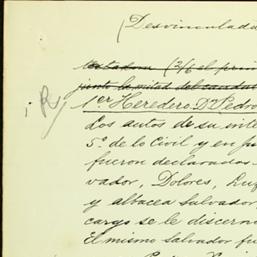 (Desvinculada
testadora (2/6 el pri
junto la mitad del caudal
R/
1er Heredero. Dn Pedro
Los autos de su inte
5º. de lo Civil y en ju
fueron declarados
vador, Dolores, Lu
y albacea Salvador
cargo se le discerni
El mismo Salvador fu